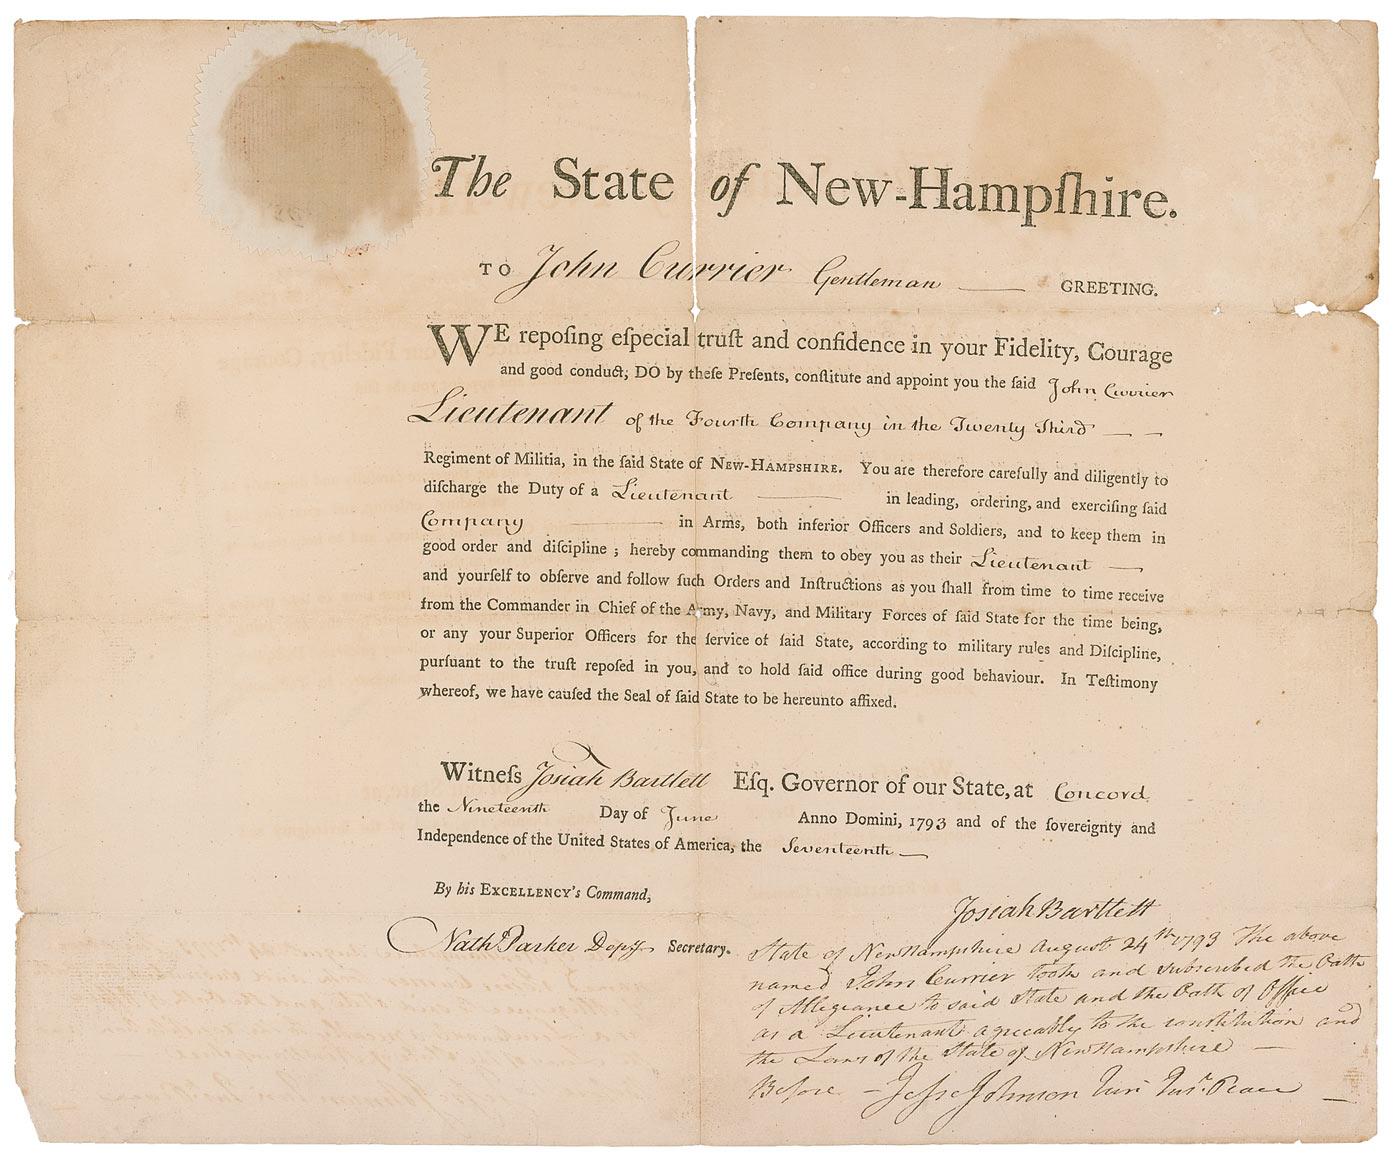 The State of New-Hampſhire.
TO John Currier Gentleman GREETING.
WE repoſing eſpecial truſt and confidence in your Fidelity, Courage
and good conduct; DO by theſe Preſents, conſtitute and appoint you the ſaid John Currier
Lieutenant of the Fourth Company in the Twenty Third
Regiment of Militia, in the ſaid State of NEW-HAMPSHIRE. You are therefore carefully and diligently to
diſcharge the Duty of a Lieutenant in leading, ordering, and exerciſing ſaid
Company in Arms, both inferior Officers and Soldiers, and to keep them in
good order and diſcipline ; hereby commanding them to obey you as their Lieutenant
and yourſelf to obſerve and follow ſuch Orders and Inſtructions as you ſhall from time to time receive
from the Commander in Chief of the Army, Navy, and Military Forces of ſaid State for the time being,
or any your Superior Officers for the ſervice of ſaid State, according to military rules and Diſcipline,
purſuant to the truſt repoſed in you, and to hold ſaid office during good behaviour. In Teſtimony
whereof, we have cauſed the Seal of ſaid State to be hereunto affixed.
Witneſs Josiah Bartlett Eſq. Governor of our State, at Concord
the Nineteenth Day of June Anno Domini, 1793 and of the ſovereignty and
Independence of the United States of America, the Seventeenth
By his EXCELLENCY's Command,
Josiah Bartlett
Nathl Parker Depy Secretary.
State of New Hampshire August 24th 1793 The above
named John Currier took and subscribed the Oath
of Allegiance to said State and the Oath of Office
as a Lieutenant agreeably to the constitution and
the Laws of the State of New Hampshire
Before Jeſse Johnson Jun Jus. Peace